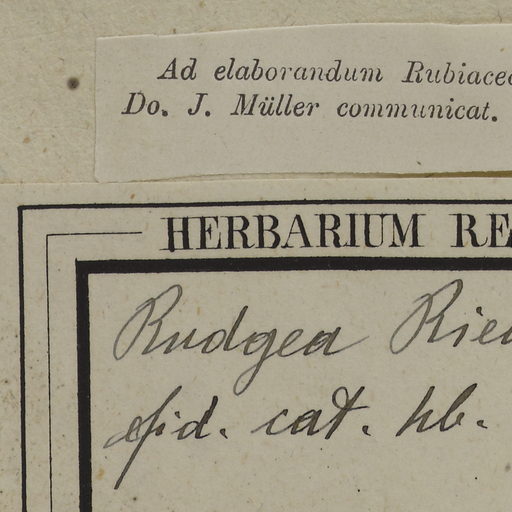 Ad elaborandum Rubiaceo
Do. J. Müller communicat.
HERBARIUM RE
Rudgea Ried
fid. cat. hb.